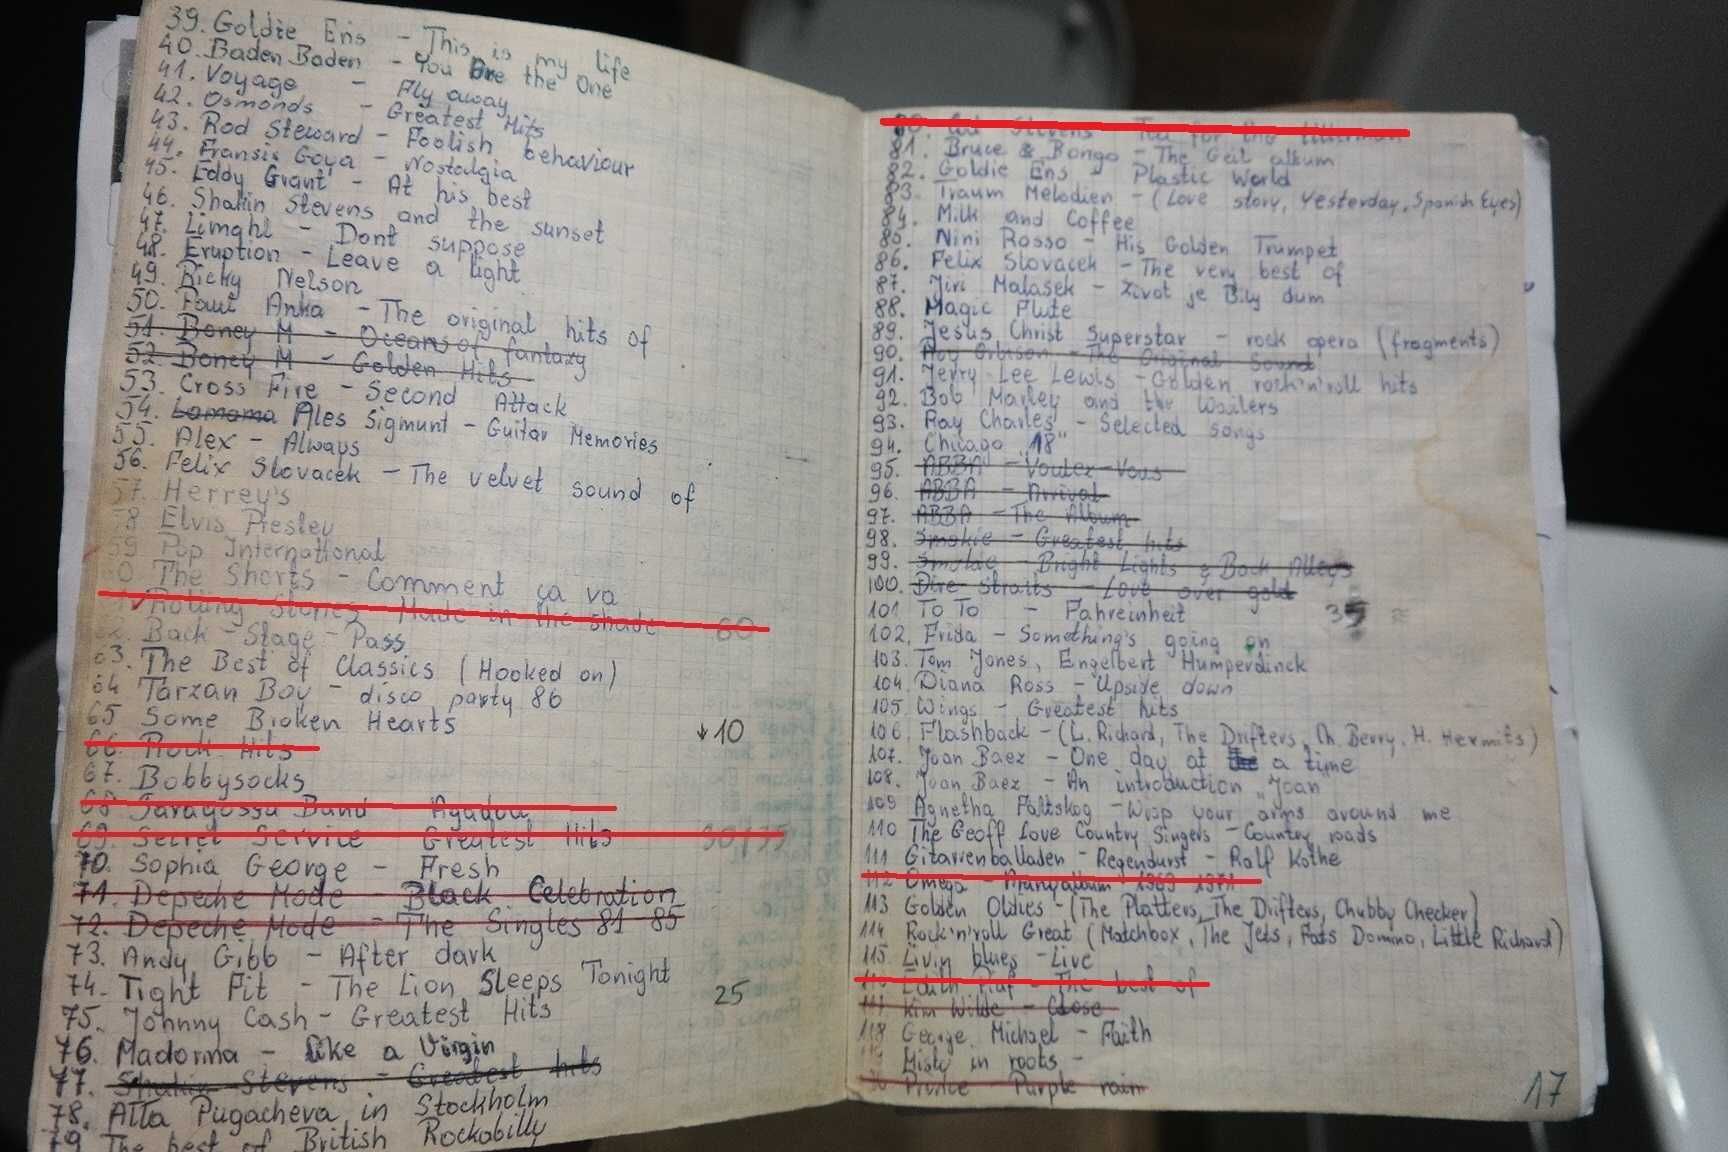 39. Goldie Ens - This is my life
40. Baden Baden - You are the One
41. Voyage - Fly away
42. Osmonds - Greatest Hits
43. Rod Steward - Foolish behaviour
44. Fransis Goya - Nostalgia
45. Eddy Grant - At his best
46. Shakin Stevens and the sunset
47. Limahl - Dont suppose
48. Eruption - Leave a light
49. Ricky Nelson
50. Paul Anka - The original hits of
51. Boney M - Oceans of fantazy
52. Boney M - Golden Hits
53. Cross Fire - Second Attack
54. Lamama Ales Sigmunt - Guitar Memories
55. Alex - Always
56. Felix Slovacek - The velvet sound of
57. Herrey's
58 Elvis Presley
59 Pop International
60 The Shorts - Comment ça va
Rolling Stones Made in the shade 60
62. Back-Stage-Pass
63. The Best of Classics (Hooked on)
64 Tarzan Boy - disco party 86
65 Some Broken Hearts ↓10
66. Rock Hits
67. Bobbysocks
68 Saragossa Band Agadou
69. Secret Service Greatest Hits 30/35
70. Sophia George - Fresh
71. Depeche Mode - Black Celebration
72. Depeche Mode - The Singles 81 85
73. Andy Gibb - After dark
74. Tight Fit - The Lion Sleeps Tonight 25
75. Johnny Cash - Greatest Hits
76. Madonna - like a Virgin
77. Shakin Stevens - Greatest hits
78. Alla Pugacheva in Stockholm
79 The best of British Rockabilly
80. Cat Stevens Tea for the tillerman
81. Bruce & Bongo - The Geil album
82. Goldie Ens - Plastic World
83. Traum Melodien - (Love story, Yesterday, Spanish Eyes)
84. Milk and Coffee
85. Nini Rosso - His Golden Trumpet
86. Felix Slovacek - The very best of
87. Jiri Malasek - Život je Bily dum
88. Magic Flute
89. Jesus Christ Superstar - rock opera (fragments)
90. Roy Orbison - The Original Sound
91. Jerry Lee Lewis - Golden rock'n'roll hits
92. Bob Marley and the Wailers
93. Ray Charles - Selected songs
94. Chicago "18"
95. ABBA - Voulez-Vous
96. ABBA - Arrival
97. ABBA - The Album
98. Smokie - Greatest hits
99. Smokie - Bright Lights & Back Alleys
100. Dire Straits - Love over gold
101 To To - Fahreinheit 35
102. Frida - Something's going on
103. Tom Jones, Engelbert Humperdinck
104. Diana Ross - Upside down
105. Wings - Greatest hits
106 Flashback - (L. Richard, The Drifters, Ch. Berry, H. Hermits)
107. Joan Baez - One day at a time
108. Joan Baez - An introduction Joan
109 Agnetha Faltskog - Wrap your arms around me
110 The Geoff Love Country Singers - Country roads
111 Gitarrenballaden - Regendurst - Ralf Kothe
112 Omega - Aranyalbum - 1969 1971
113 Golden Oldies - (The Platters, The Drifters, Chubby Checker)
114 Rock'n'roll Great (Matchbox, The Jets, Fats Domino, Little Richard)
115 Livin blues - Live
116 Edith Piaf - The best of
117 Kim Wilde - Close
118 George Michael - Faith
119 Misty in roots -
Prince Purple rain
17